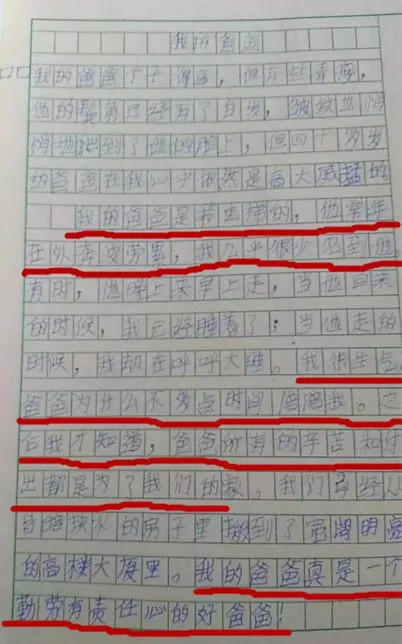 我的爸爸
我的爸爸个子很高,但有些青瘦,
他的鬓角已经有了白发,皱纹也悄
悄地爬到了他的脸上,但四十多岁
的爸爸在我心中依然是高大威猛的
我的爸爸是若电梯的,他常年
在外奔波劳累,我几乎很少见到他,
有时,他晚上来早上走,当他回来
的时候,我已经睡着了;当他走的
时候,我却在呼呼大睡。我很生气,
爸爸为什么不多点时间陪陪我。之
后我才知道,爸爸所有的辛苦和付
出都是为了我们的家,我们已经从
的房子里搬到了宽阔明亮
的高楼大厦里。我的爸爸真是一个
勤劳有责任心的好爸爸!